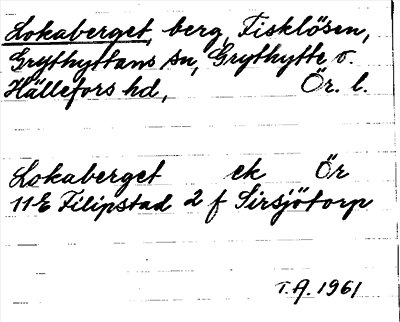 Lokaberget, berg, Fisklösen,
Grythyttans sn, Grythytte o.
Hällefors hd, Ör. l.
Lokaberget ek Ör
11E Filipstad 2 f Sirsjötorp
T.A. 1961